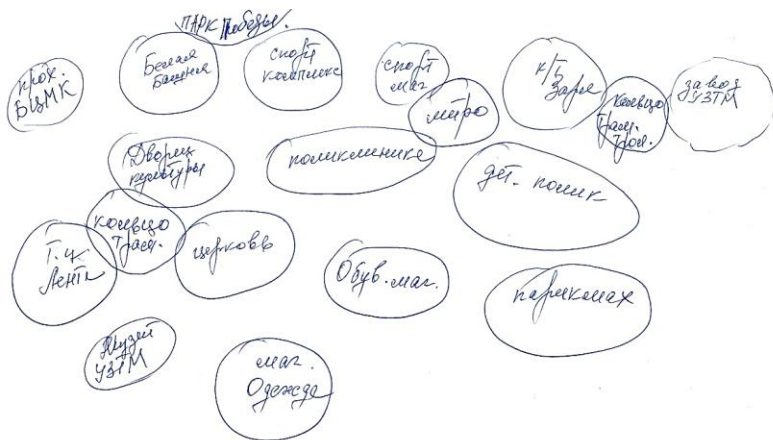 ПАРК Победы.
прох.
БЦМК
Белая
Башня
спорт
комплекс
спорт
маг.
метро
к/т
Заря
кольцо
трам.
трол.
завод
УЗТМ
Дворец
культуры
поликлиника
дет. полик
кольцо
трам.
Т.ц.
Лента
церковь
Обув. маг.
парикмах
Музей
УЗТМ
маг.
Одежда